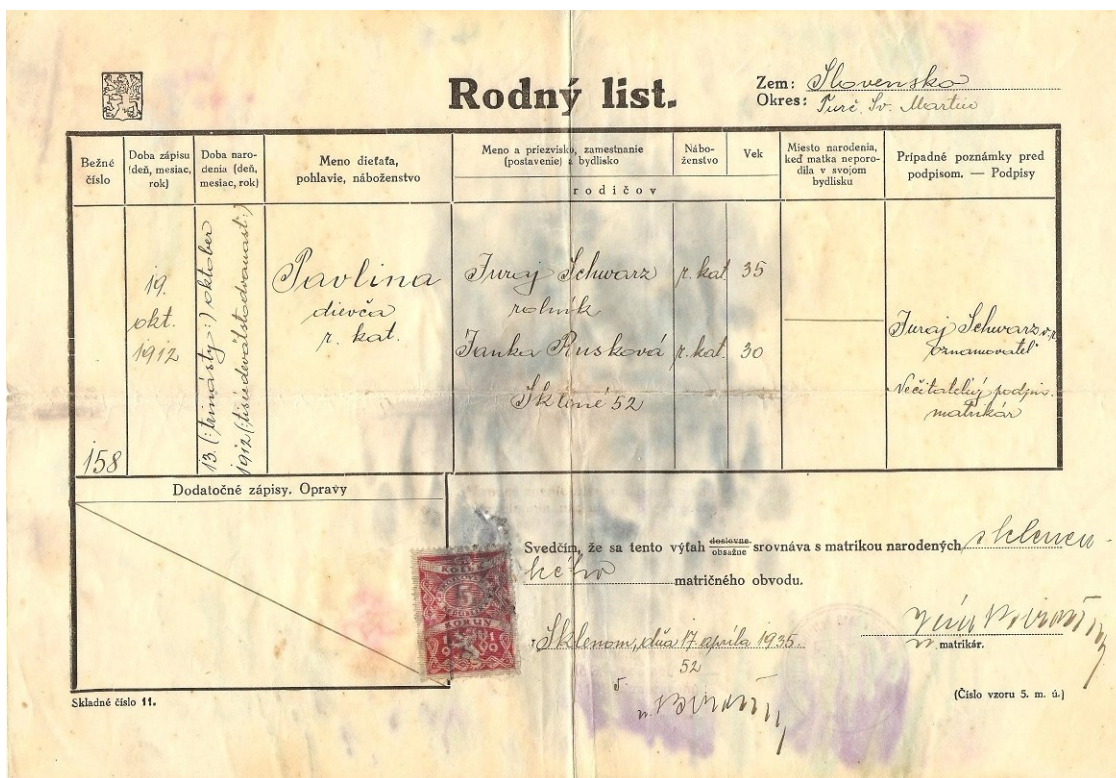 Rodný list.
Zem: Slovensko
Okres: Turč. Sv. Martin
Bežné číslo
Doba zápisu (deň, mesiac, rok)
Doba narodenia (deň, mesiac, rok)
Meno dieťaťa, pohlavie, náboženstvo
Meno a priezvisko, zamestnanie (postavenie) a bydlisko
Nábo-
ženstvo
Vek
rodičov
Miesto narodenia, keď matka neporo-
dila v svojom bydlisku
Prípadné poznámky pred podpisom. — Podpisy
158
19.
okt.
1912
13. (:trinásty:) október
1912 (:tisícdeväťstodvanásť:)
Pavlina
dievča
r. kat.
Juraj Schwarz r. kat. 35
rolník
Janka Rusková r. kat. 30
Sklené 52
Juraj Schwarz v. r.
oznamovateľ
Nečitateľný podpis.
matrikár
Dodatočné zápisy. Opravy
Svedčím, že sa tento výťah doslovne obsažne srovnáva s matrikou narodených sklenen-
kého matričného obvodu.
5
KORUN
1919
Sklenom, dňa 17 apríla 1935.
52
matrikár.
Skladné číslo 11.
(Číslo vzoru 5. m. ú.)